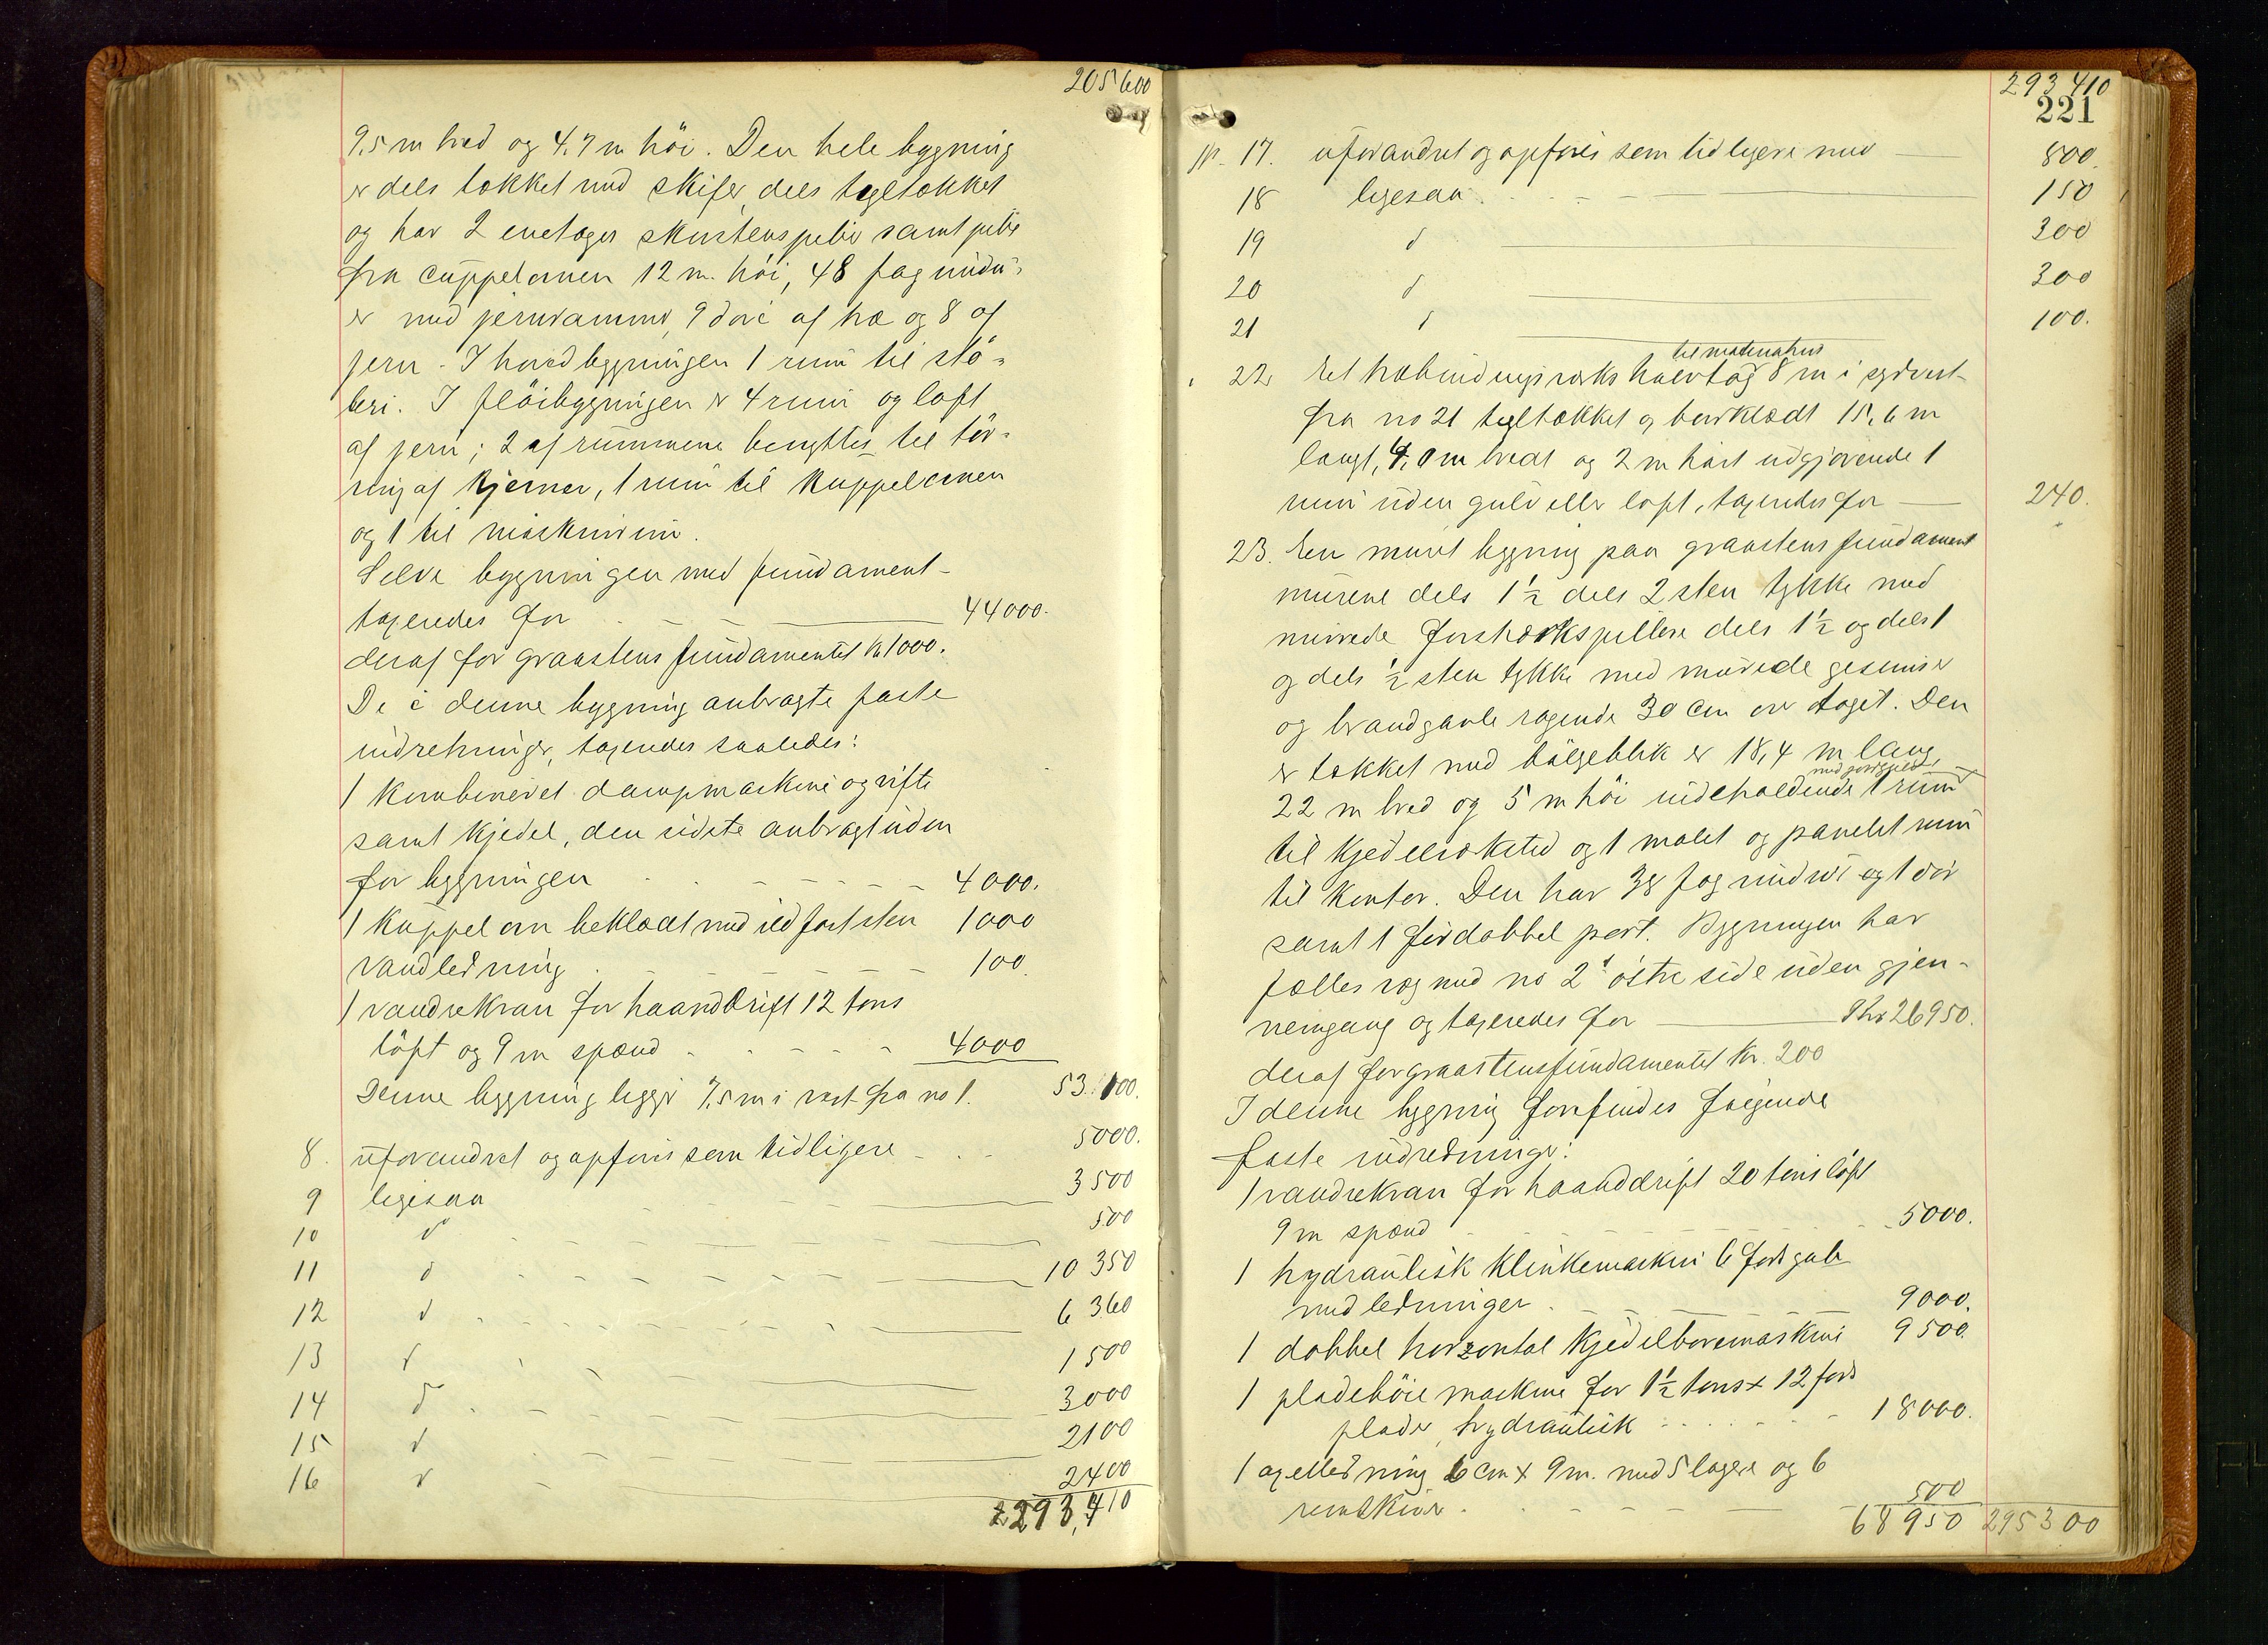 205600
9,5 m bred og 4,7 m höi. Den hele bygning
er dels tækket med skifer, dels tegltækket
og har 2 enetages skorstenspiber samt pibe
fra cuppelovnen 12 m. höi, 48 fag vindu-
er med jernrammer, 9 döre af træ og 8 af
jern. I hovedbygningen 1 rum til stö-
beri. I flöibygningen er 4 rum og loft
af jern; 2 af rummene benyttes til tör-
ring af kjerner, 1 rum til kuppelovnen
og 1 til maskinrum.
Selve bygningen med fundament
taxeredes for 44000.
deraf for graastensfundamentet kr 1000.
De i denne bygning anbragte faste
indretninger, taxeredes saaledes:
1 kombineret dampmaskine og vifte
samt kjedel, den sidste anbragt uden
for bygningen 4000.
1 kuppelovn beklædt med ildfast sten 1000
Vandledning 100.
1 vandrekran for haanddrift 12 tons
löft og 9 m spænd 4000
Denne bygning ligger 7,5 m i vest fra no 1. 53.100.
8. uforandret og opföres som tidligere 5000.
9 ligesaa 3500
10 d 500
11 d 10 350
12 d 6 360
13 d 1 500
14 d 3000
15 d 2100
16 d 2400
293,410
293 410
221
17. uforandret og opföres som tidligere med 800.
18 ligesaa 150
19 d 300
20 d 300
21 d 100.
til materialhus
22. Et træbindingsværks halvtag 8 m i sydvest
fra no 21 tegltækket og bordklædt 15,6 m
langt, 4,0 m bredt og 2 m höit udgjörende 1
rum uden gulv eller loft, taxeredes for 240.
23. En muret bygning paa graastens fundament
murene dels 1½ dels 2 sten tykke med
murede forstærkspillere dels 1½ og dels 1
og dels ½ sten tykke med murede gesimser
og brandgavle ragende 30 cm over taget. Den
er tækket med bölgeblik er 18,4 m lang
med jordgulv
22 m bred og 5 m höi indeholdende 1 rum
til kjedelverksted og 1 malet og panelet rum
til kontor. Den har 38 fag vinduer og 1 dör
samt 1 firdobbel port. Bygningen har
fælles væg med no 2's östre side uden gjen-
nemgang og taxeredes for Kr 26950.
deraf for graastensfundamentet kr. 200
I denne bygning forefindes fölgende
faste indredninger:
1 vandrekran for haanddrift 20 tons löft
9 m spænd 5000.
1 hydraulisk klinkemaskin 6 fods gab
med ledninger 9000.
1 dobbel horzontal kjedelboremaskine 9500.
1 pladeböie maskine for 1½ tons x 12 fods
plader, hydraulisk 18000.
1 axelledning 6 cm x 9 m. med 5 lagere og 6
remskiver 500
68950 295300